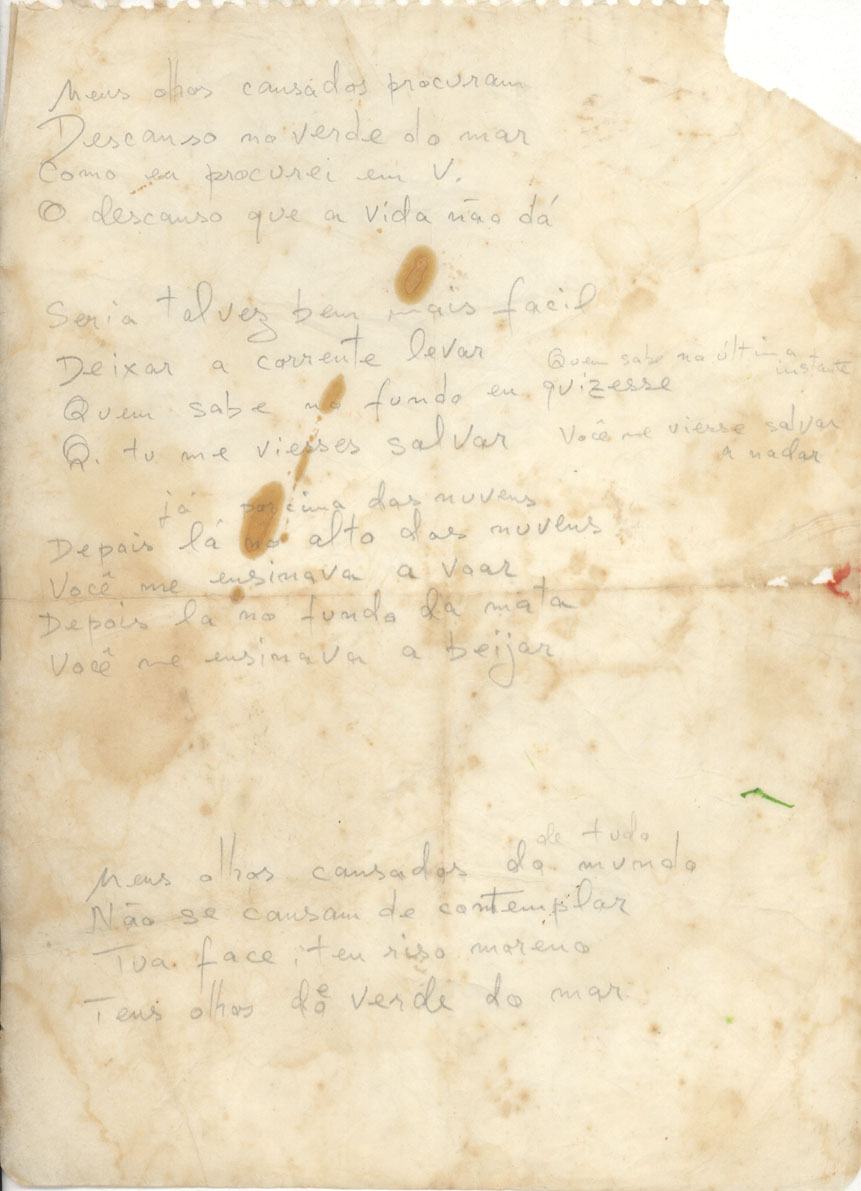 Meus olhos cansados procuram
Descanso no verde do mar
Como eu procurei em V.
O descanso que a vida não dá
Seria talvez bem mais facil
Deixar a corrente levar
Quem sabe no fundo eu quizesse
Q. tu me viesses salvar
Quem sabe no última
instante
Você me viesse salvar
a nadar
já por cima das nuvens
Depois lá no alto das nuvens
Você me ensinava a voar
Depois la no fundo da mata
Você me ensinava a beijar
de tudo
Meus olhos cansados do mundo
Não se cansam de contemplar
Tua face, teu riso moreno
Teus olhos do e verde do mar